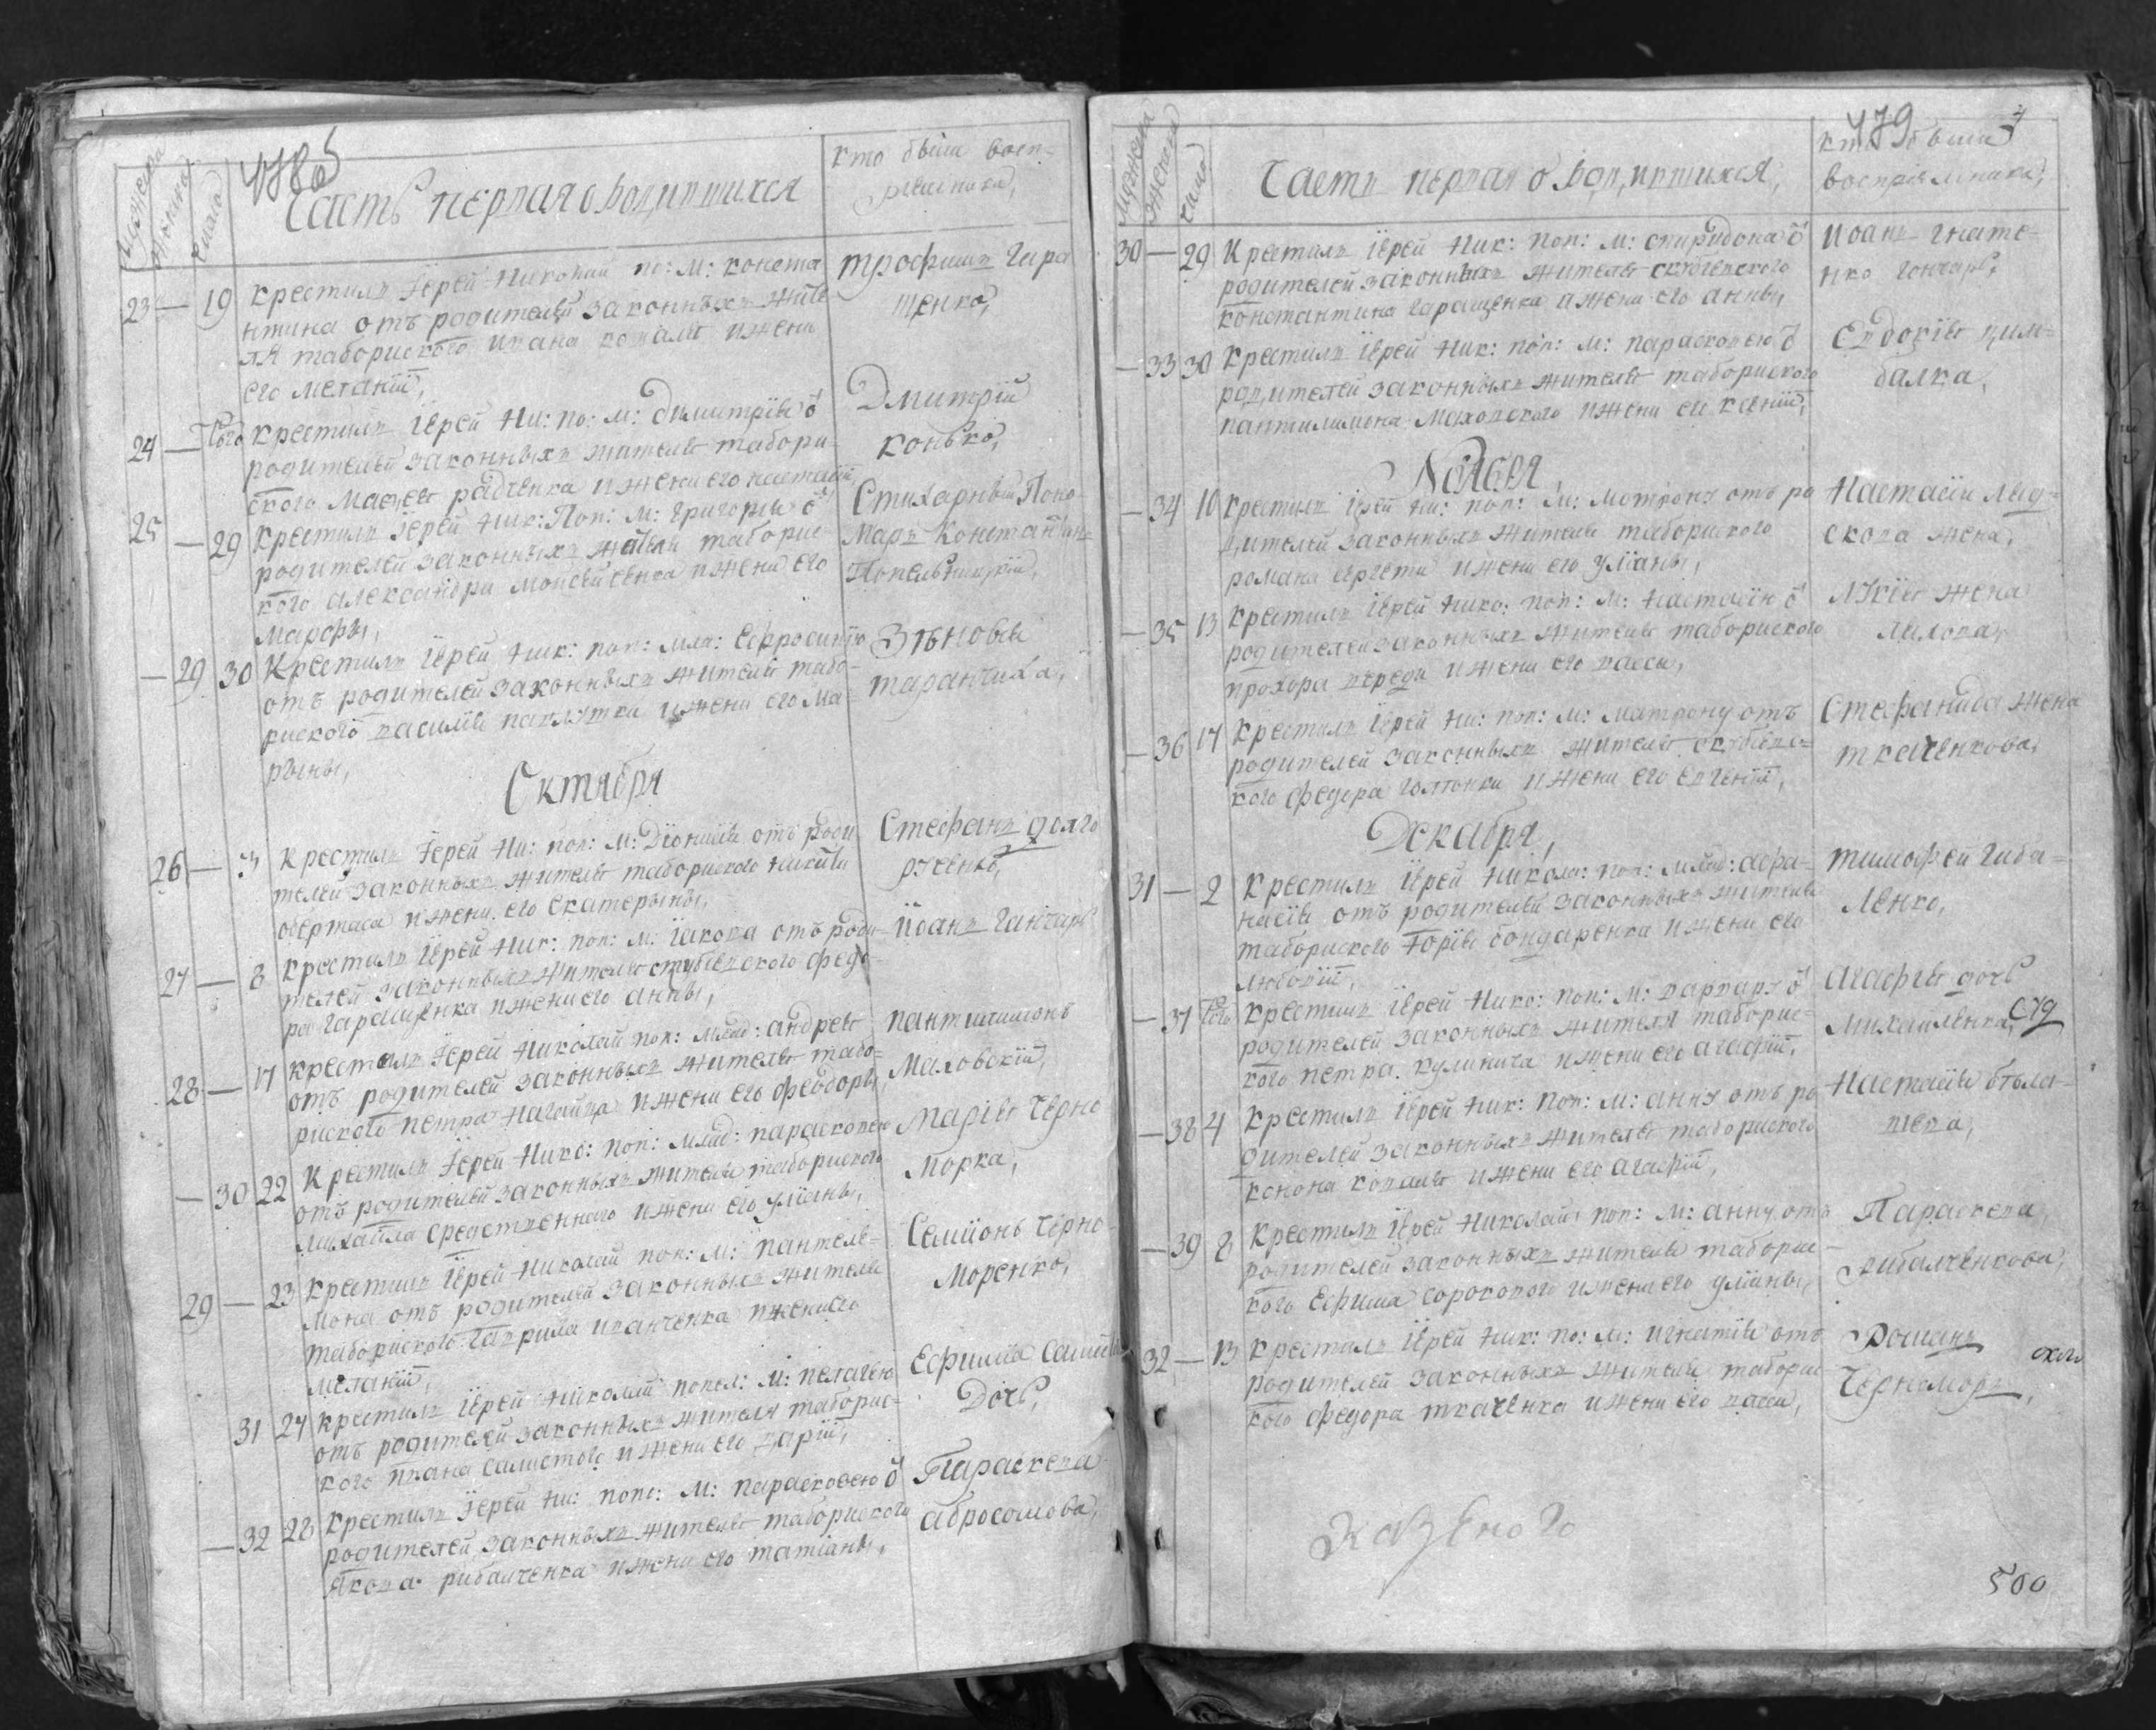 Мужеска
Женска
Число
Часть первая о родившихся
кто были восп-
23 — 19 Крестилъ Іерей Николай по: м: конста
нтина отъ родителей законныхъ жите
ля табориского ивана ковалѣ ижени
его меланіи,
трофимъ Гара
щенко,
24 — Того Крестилъ Іерей Ни: по: м: димитріѣ ѿ
родителей законныхъ жителѣ табори-
ского Мафѣѣ радченка ижени его настасіи,
Дмитрій
конько,
25 — 29 Крестилъ Іерей Ник: Поп: м: григоріѣ ѿ
родителей законныхъ жителѣ таборис-
кого александра моисейсенка ижени его
марфы,
Стихарный Поно
Марь Константинъ
Попельницкій,
— 29 30 Крестилъ Іерей Ник: поп: мла: Ефросинію
отъ родителей законныхъ жителѣ табо-
риского василіѣ павлушка ижени его ма-
рины,
Зѣновіѣ
таранчиха,
Октября
26 — 3 Крестилъ Іерей Ни: поп: м: Діонисіѣ отъ роди
телей законныхъ жителѣ табориского никити
овертаса ижени его екатерыны,
Стефанъ долго
русенко,
27 — 8 Крестилъ Іерей Ник: поп: м: Іакова отъ роди-
телей законныхъ жителѣ стубіевского федо-
ра Гаращенка ижени его анны,
Іоанъ Ганчаръ
28 — 17 Крестилъ Іерей Николай поп: млад: андрея
отъ родителей законныхъ жителѣ табо-
риского петра нагайца ижени его феодоры,
пантилимонъ
Маховскій,
— 30 22 Крестилъ Іерей Нико: поп: млад: параскопею
отъ родителей законныхъ жителѣ таборискаго
михайла средственного ижени его уліаны,
Маріѣ Черно
морка,
29 — 23 Крестилъ Іерей Николай поп: м: пантеле-
мона отъ родителей законныхъ жителѣ
таборіского Гаврила иванченка ижени его
меланіи,
Семіонъ Черно-
моренко,
31 27 Крестилъ Іерей Николай попол: м: пелагею
отъ родителей законныхъ жителя таборис-
кого ивана салистого ижени его даріи,
Ефиміѣ
Дочь,
— 32 28 Крестилъ Іерей Ни: попо: м: парасковею ѿ
родителей законныхъ жителѣ таборискаго
Якова рибалченка ижени его татіаны,
Параскева
абросомова,
479
Мужеска
Женска
число
Часть первая о родившихся,
кто были
воспріѣмники,
30 — 29 Крестилъ Іерей Ник: поп: м: спиридона ѿ
родителей законныхъ жителѣ стубіевского
константина гаращенка ижени его анны,
Иоанъ гнате-
нко гончаръ,
— 33 30 Крестилъ Іерей Ник: поп: м: параскопею ѿ
родителей законныхъ жителѣ таборискаго
пантилимона Маховского ижени его ксеніи,
Евдокіѣ цим-
балка,
Ноября,
— 34 10 Крестилъ Іерей Ни: поп: м: мотрону отъ ро
дителей законныхъ жителѣ таборискаго
романа ижени его уліаны,
Настасіи
скова жена,
— 35 13 Крестилъ Іерей Нико: поп: м: настасію ѿ
родителей законныхъ жителѣ таборискаго
прохора вереди ижени его васси,
жена
— 36 17 Крестилъ Іерей Ни: поп: м: матрону отъ
родителей законныхъ жителѣ стубіевс=
кого федора голтонки ижени его евгеніи,
Стефанида жена
ткаченкова,
Декабря,
31 — 2 Крестилъ Іерей Никола: поп: млад: афа-
насіѣ отъ родителей законныхъ жителѣ
таборискаго Юріѣ бондаренка ижени его
любовіи,
тимофей Гиба-
ленко,
— 37 Того Крестилъ Іерей Нико: поп: м: варвару ѿ
родителей законныхъ жителя таборис-
кого петра кулинича ижени его агафіи,
агафіѣ дочь
Михайленка,
— 38 4 Крестилъ Іерей Ник: поп: м: анну отъ ро
дителей законныхъ жителѣ таборискаго
конона ковалѣ ижени его агафіи,
Настасіѣ
— 39 8 Крестилъ Іерей Николай поп: м: анну отъ
родителей законныхъ жителѣ таборис-
кого Ефима сорокового ижени его уліаны,
Параскева
рибалченкова,
32 — 13 Крестилъ Іерей Ник: по: м: игнатіѣ отъ
родителей законныхъ жителѣ таборис-
кого федора ткаченка ижени его васси,
Романъ
Черноморъ,
500